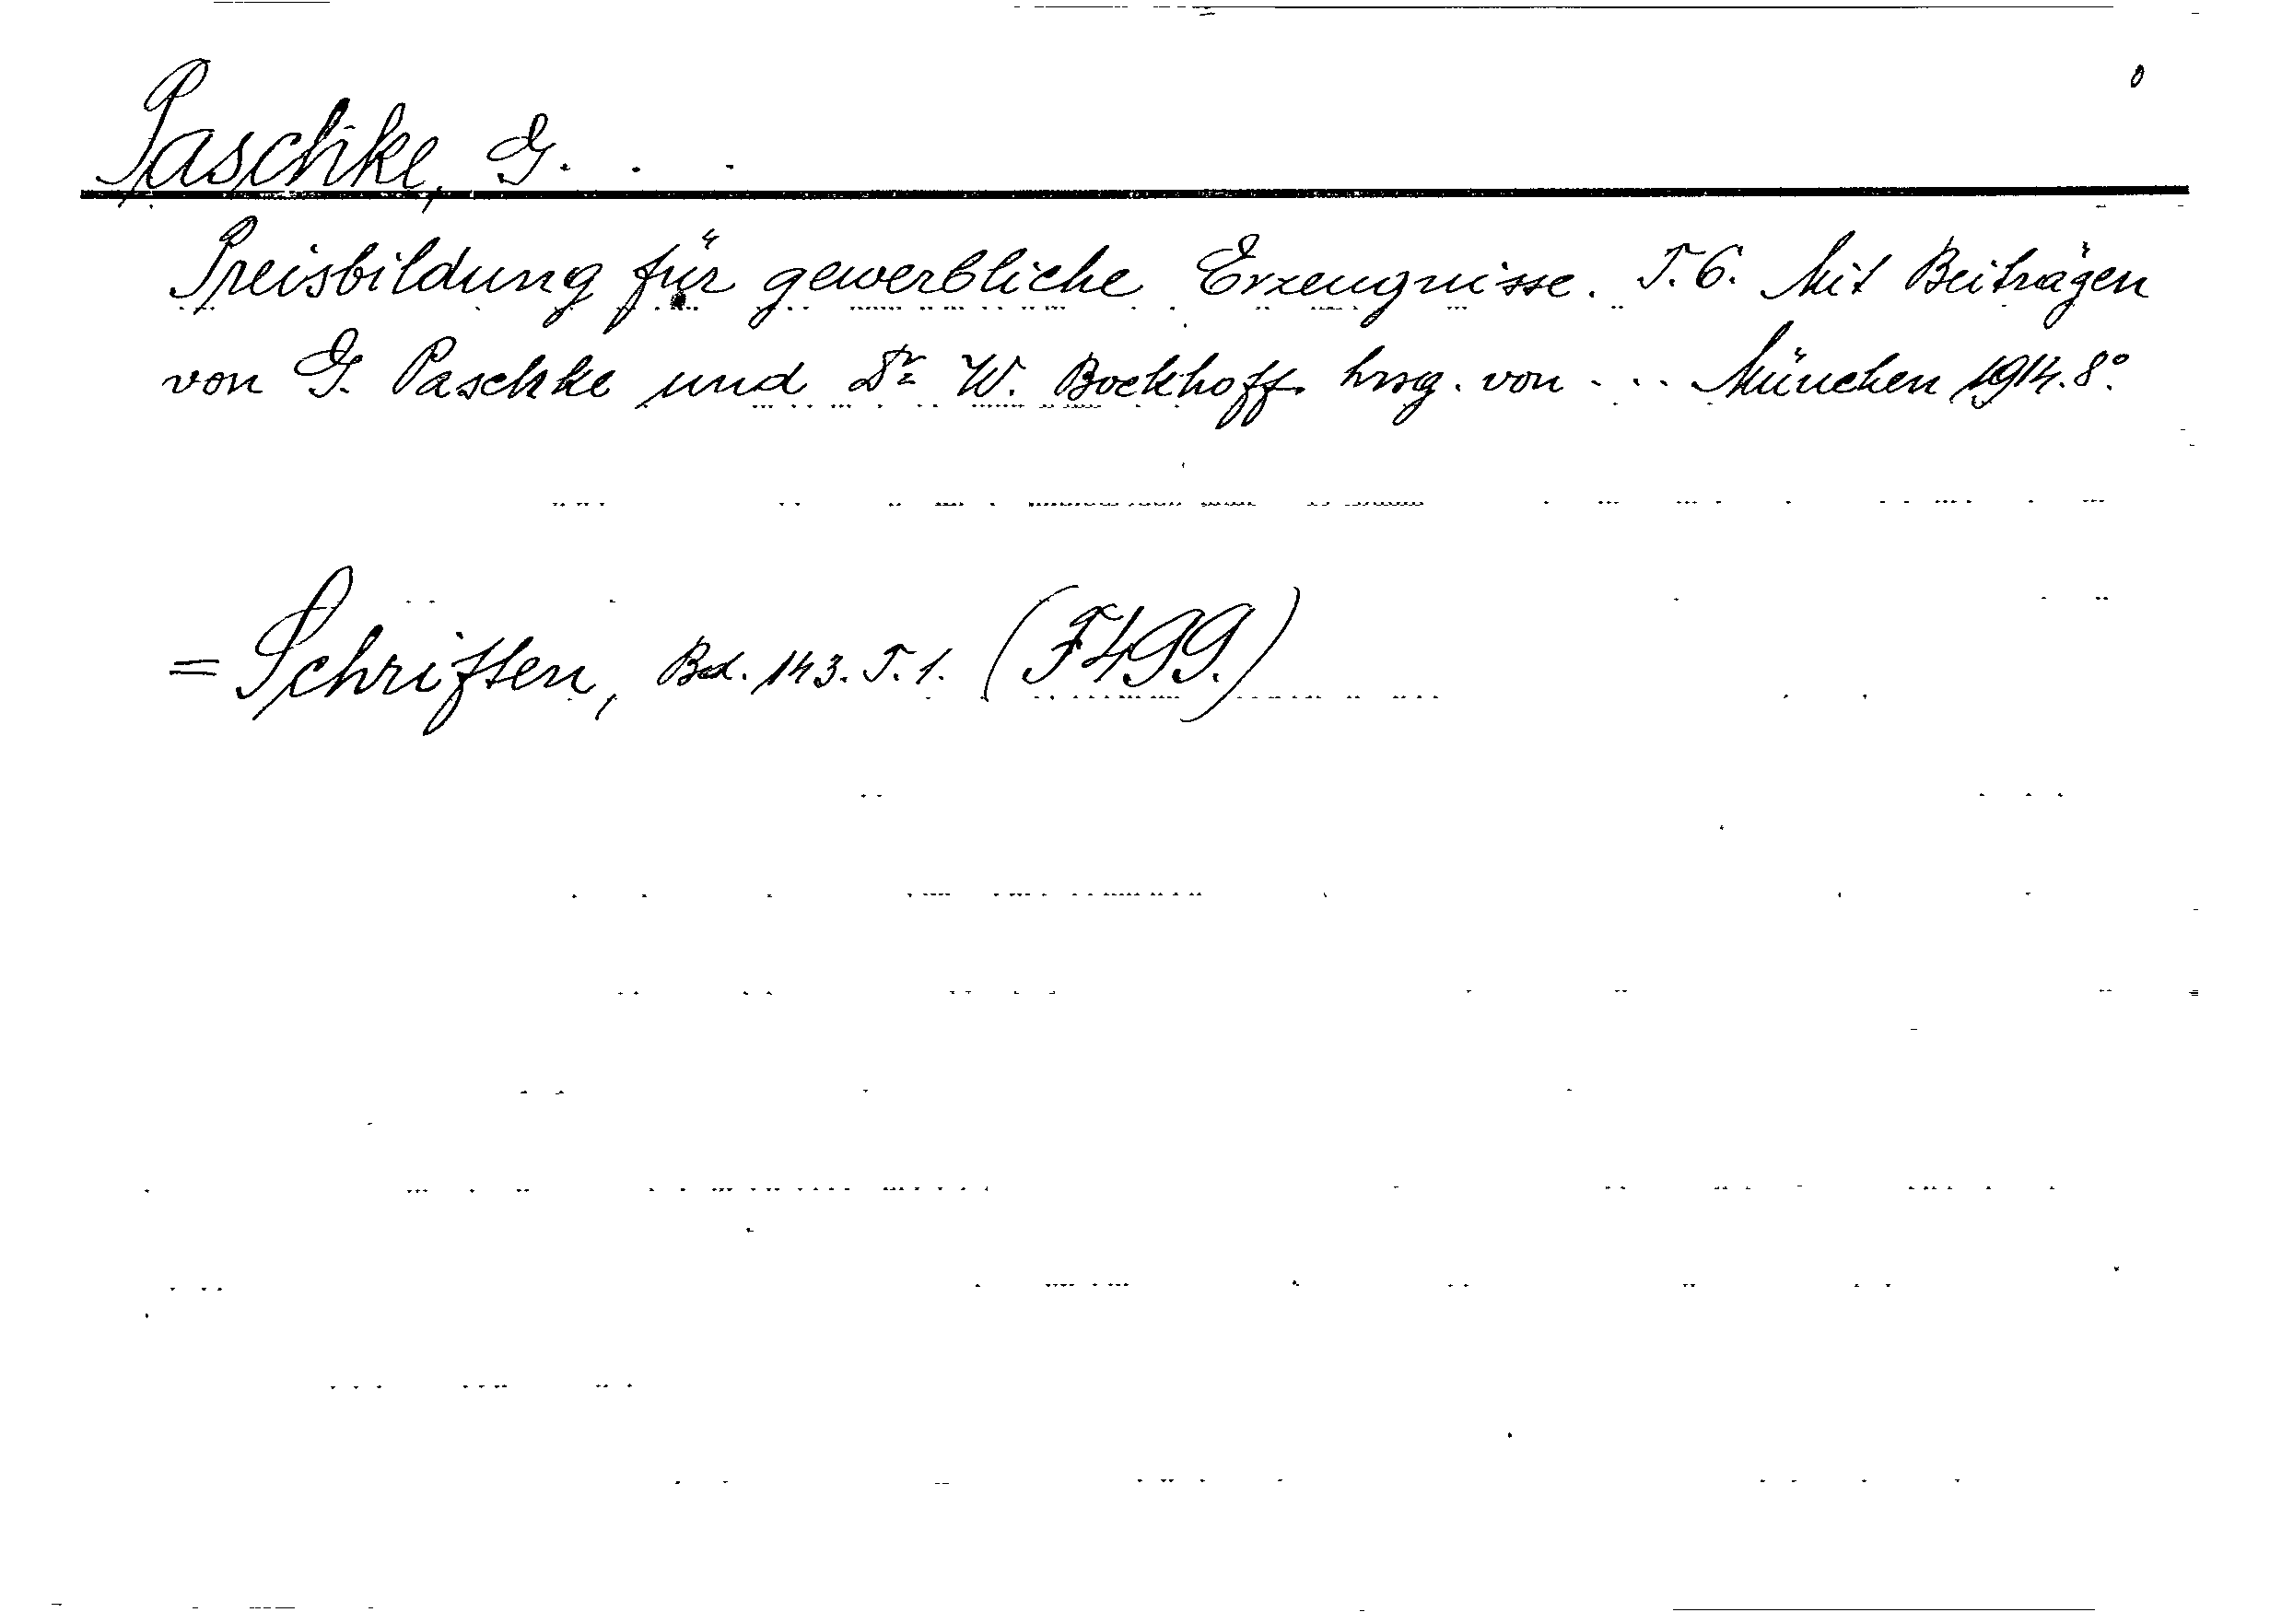 Paschke, G. . .
Preisbildung für gewerbliche Erzeugnisse. T. 6. Mit Beiträgen
von G. Paschke und Dr W. Bockhoff hrsg. von . . . München 1914. 8°.
= Schriften, Bd. 143. T. 1. (F499.)